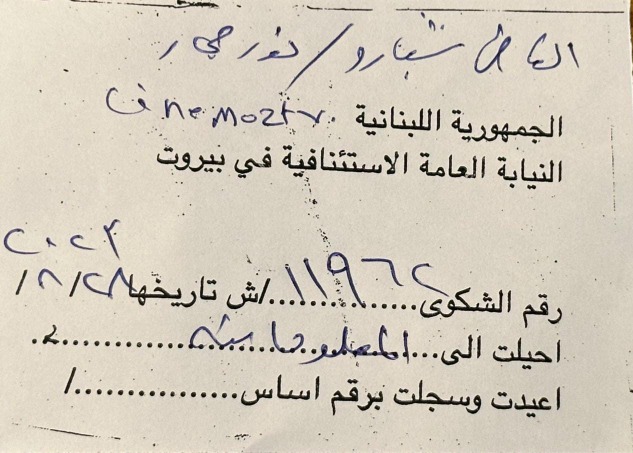 القاضي شبارو / نور حجار
الجمهورية اللبنانية
النيابة العامة الاستئنافية في بيروت
٢٠٢٣
رقم الشكوى ١١٩٦٢ /ش تاريخها ٢٨/٨/
احيلت الى المعلوماتية
اعيدت وسجلت برقم اساس................/